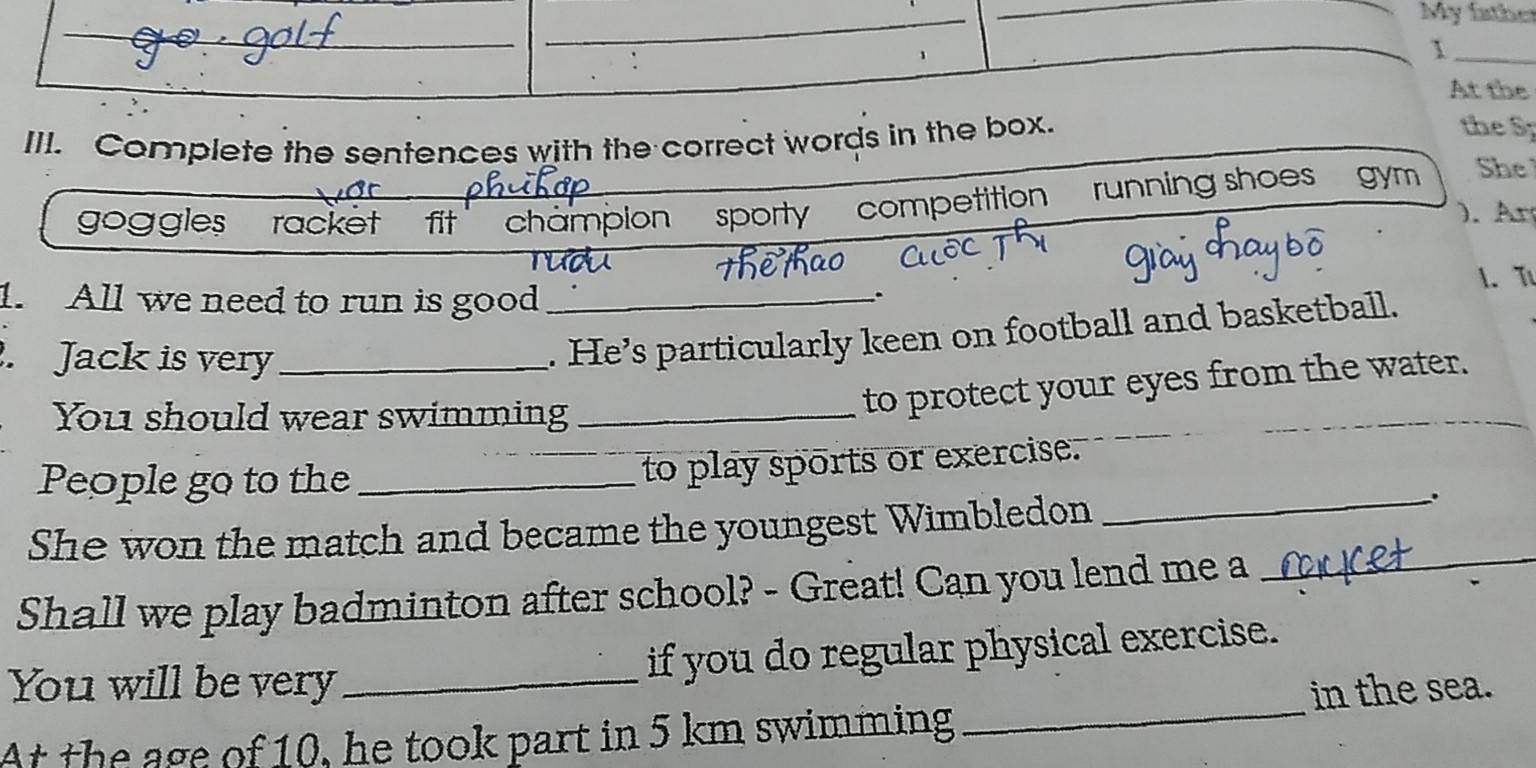 go. golf
My father
I
At the
the
She
III. Complete the sentences with the correct words in the box.
phuihop
goggles racket fit champion sporty competition running shoes gym
thể thao cuộc Thi giày chay bō
1. All we need to run is good ____________.
Jack is very ____________. He's particularly keen on football and basketball.
You should wear swimming ____________ to protect your eyes from the water.
People go to the ____________ to play sports or exercise.
She won the match and became the youngest Wimbledon ____________.
Shall we play badminton after school? - Great! Can you lend me a racket
You will be very ____________ if you do regular physical exercise.
At the age of 10, he took part in 5 km swimming ____________ in the sea.